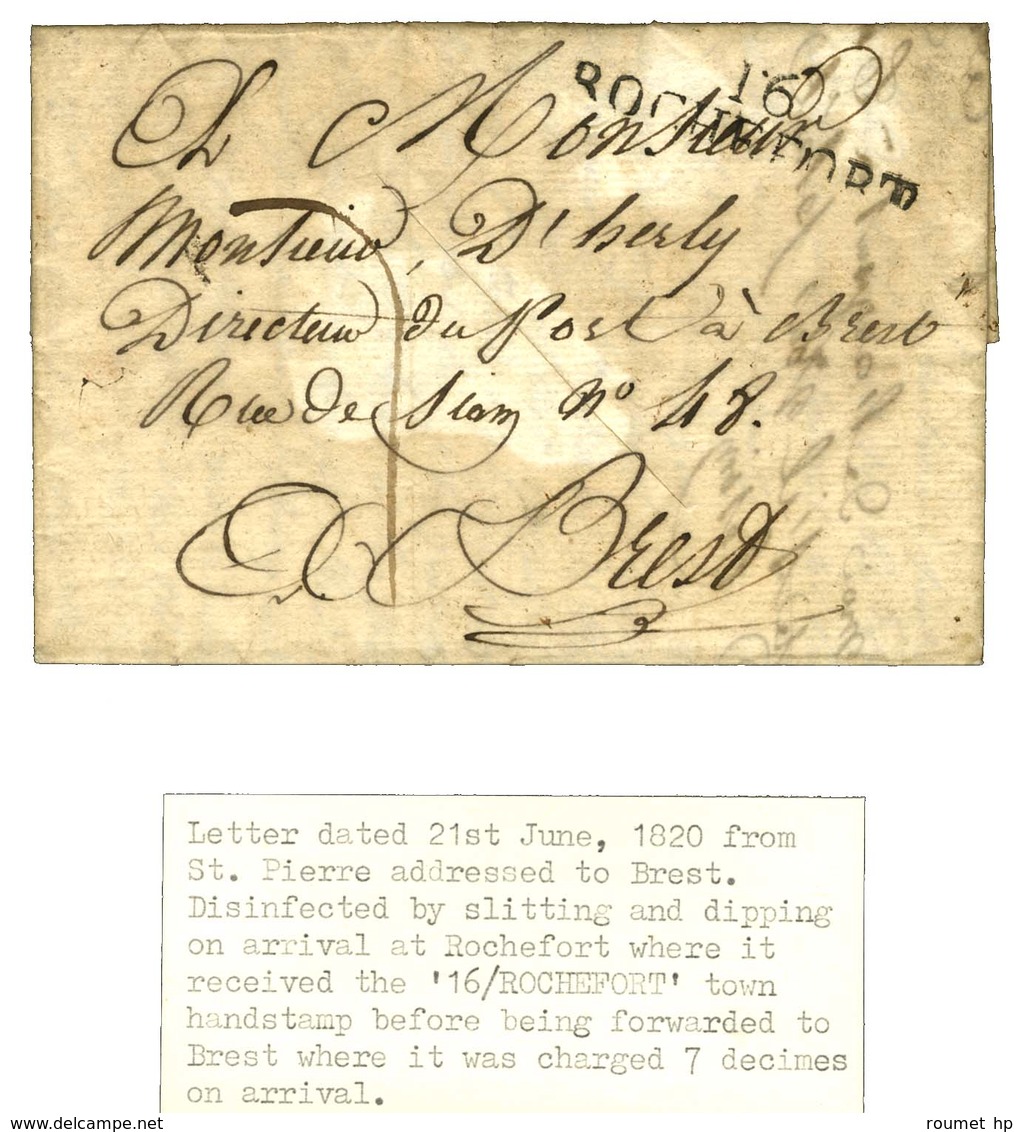 16
ROCHEFORT
A Monsieur
Monsieur, D'herly
Directeur du Port à Brest
Rue de Siam n° 48.
A Brest
Letter dated 21st June, 1820 from
St. Pierre addressed to Brest.
Disinfected by slitting and dipping
on arrival at Rochefort where it
received the '16/ROCHEFORT' town
handstamp before being forwarded to
Brest where it was charged 7 decimes
on arrival.
www.delcampe.net
roumet hp